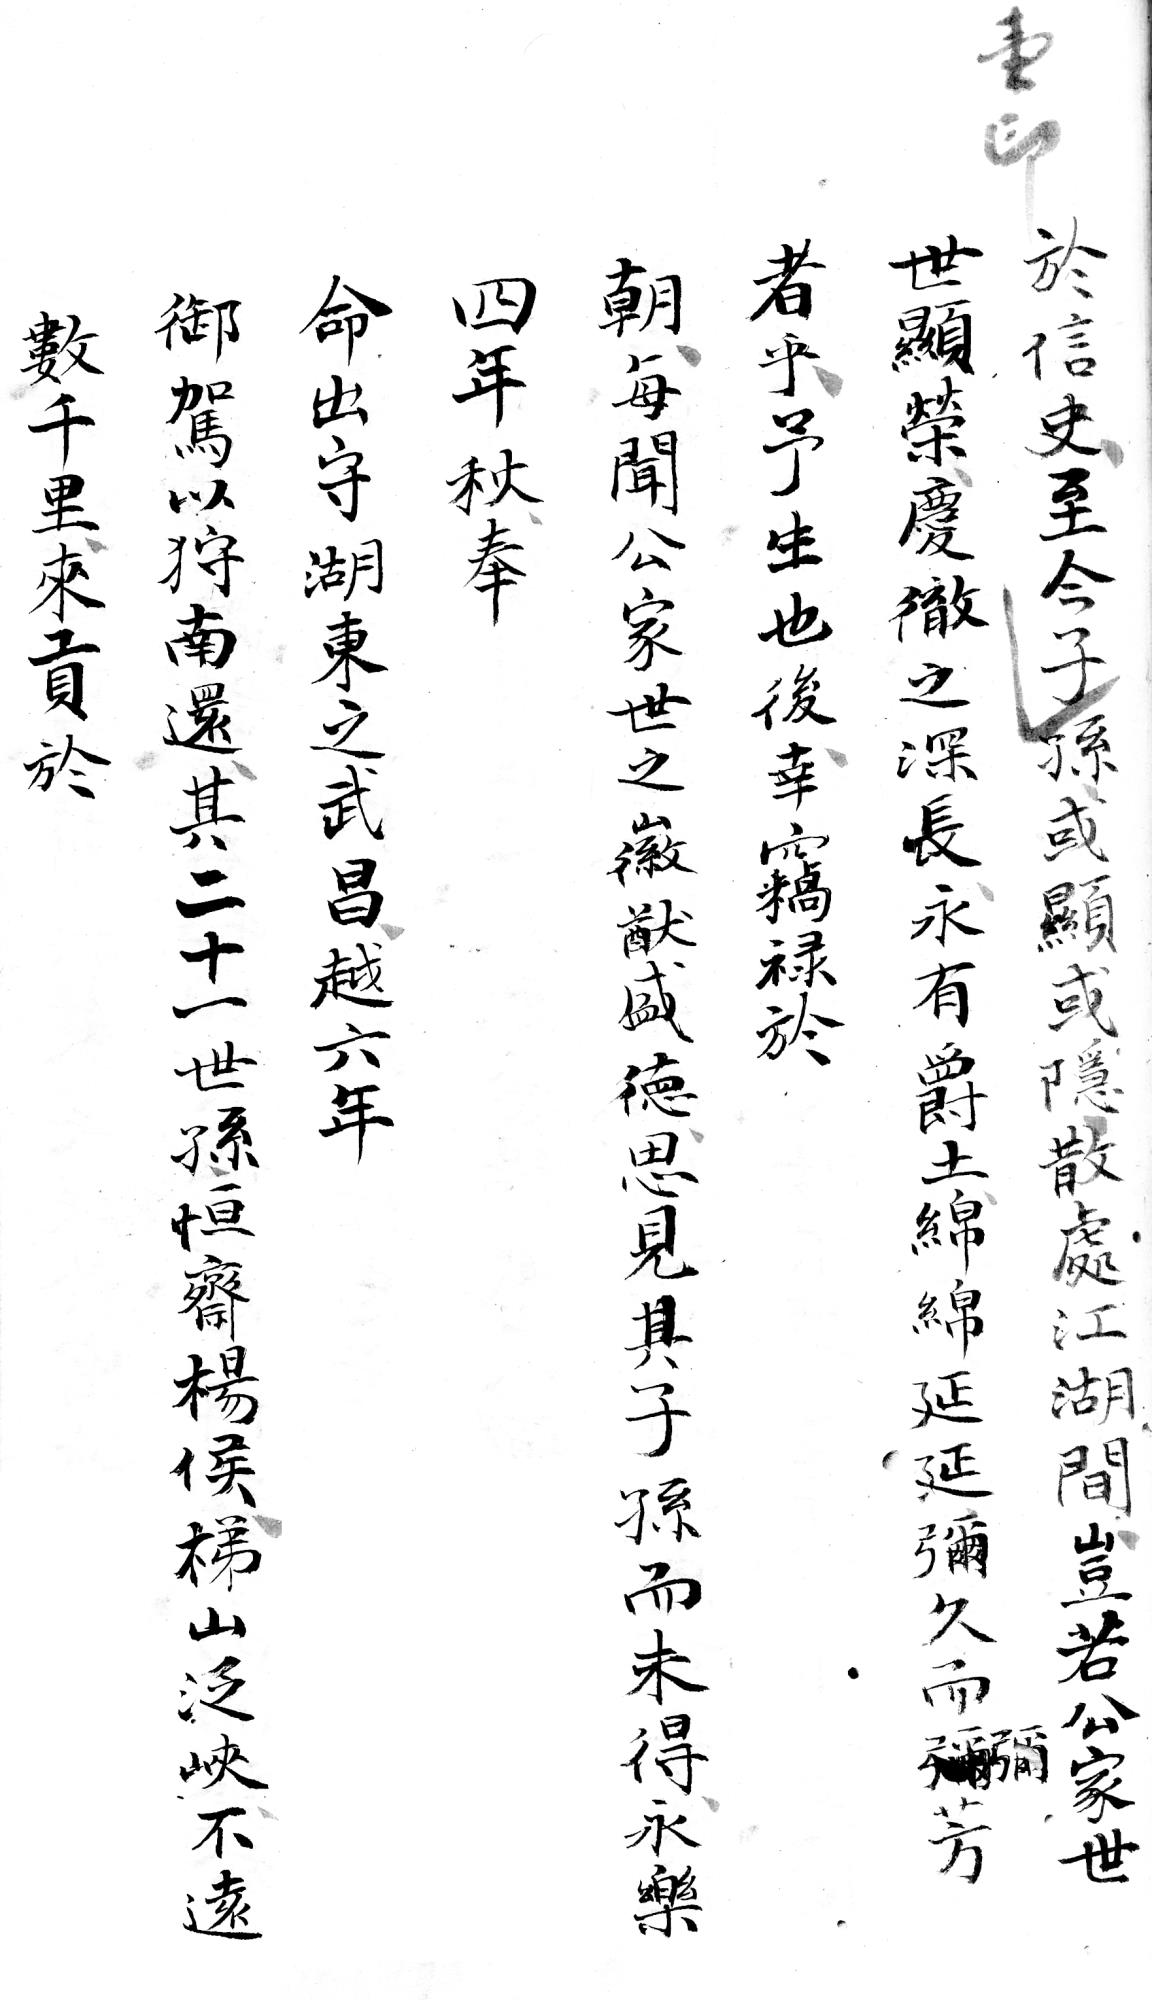 於信史至今子孫或顯或隱散處江湖間豈若公家世
世顯榮慶徹之深長永有爵土綿綿延延彌久而彌芳
者乎予生也後幸竊禄於
朝每聞公家世之徽猷盛德思見其子孫而未得永樂
四年秋奉
命出守湖東之武昌越六年
御駕以狩南還其二十一世孫恒齋楊侯梯山泛峽不遠
數千里來貢於